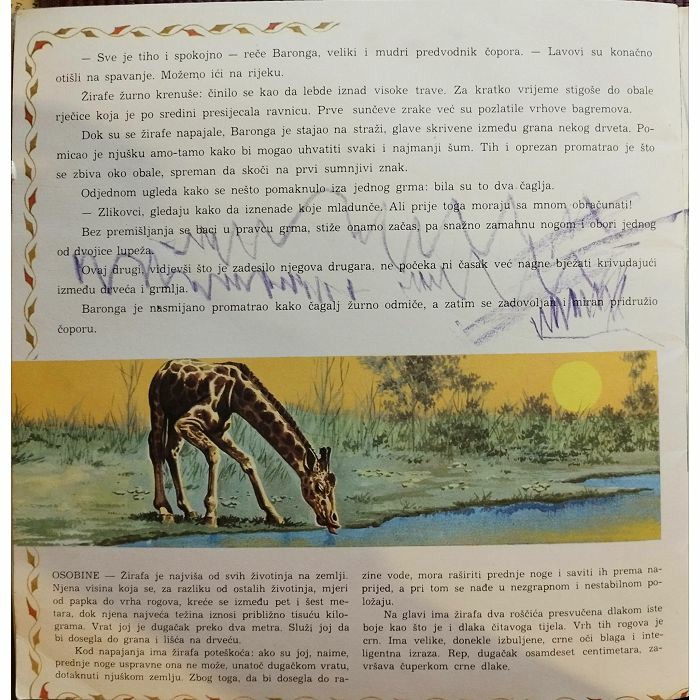 — Sve je tiho i spokojno — reče Baronga, veliki i mudri predvodnik čopora. — Lavovi su konačno
otišli na spavanje. Možemo ići na rijeku.
Žirafe žurno krenuše: činilo se kao da lebde iznad visoke trave. Za kratko vrijeme stigoše do obale
rječice koja je po sredini presijecala ravnicu. Prve sunčeve zrake već su pozlatile vrhove bagremova.
Dok su se žirafe napajale, Baronga je stajao na straži, glave skrivene između grana nekog drveta. Po-
micao je njušku amo-tamo kako bi mogao uhvatiti svaki i najmanji šum. Tih i oprezan promatrao je što
se zbiva oko obale, spreman da skoči na prvi sumnjivi znak.
Odjednom ugleda kako se nešto pomaknulo iza jednog grma: bila su to dva čaglja.
— Zlikovci, gledaju kako da iznenade koje mladunče. Ali prije toga moraju sa mnom obračunati!
Bez premišljanja se baci u pravcu grma, stiže onamo začas, pa snažno zamahnu nogom i obori jednog
od dvojice lupeža.
Ovaj drugi, vidjevši što je zadesilo njegova drugara, ne počeka ni časak već nagne bježati krivudajući
između drveća i grmlja.
Baronga je nasmijano promatrao kako čagalj žurno odmiče, a zatim se zadovoljan i miran pridružio
čoporu.
OSOBINE — Žirafa je najviša od svih životinja na zemlji.
Njena visina koja se, za razliku od ostalih životinja, mjeri
od papka do vrha rogova, kreće se između pet i šest me-
tara, dok njena najveća težina iznosi približno tisuću kilo-
grama. Vrat joj je dugačak preko dva metra. Služi joj da
bi dosegla do grana i lišća na drveću.
Kod napajanja ima žirafa poteškoća: ako su joj, naime,
prednje noge uspravne ona ne može, unatoč dugačkom vratu,
dotaknuti njuškom zemlju. Zbog toga, da bi dosegla do ra-
zine vode, mora raširiti prednje noge i saviti ih prema na-
prijed, a pri tom se nađe u nezgrapnom i nestabilnom po-
ložaju.
Na glavi ima žirafa dva roščića presvučena dlakom iste
boje kao što je i dlaka čitavoga tijela. Vrh tih rogova je
crn. Ima velike, donekle izbuljene, crne oči blaga i inte-
ligentna izraza. Rep, dugačak osamdeset centimetara, za-
vršava čuperkom crne dlake.